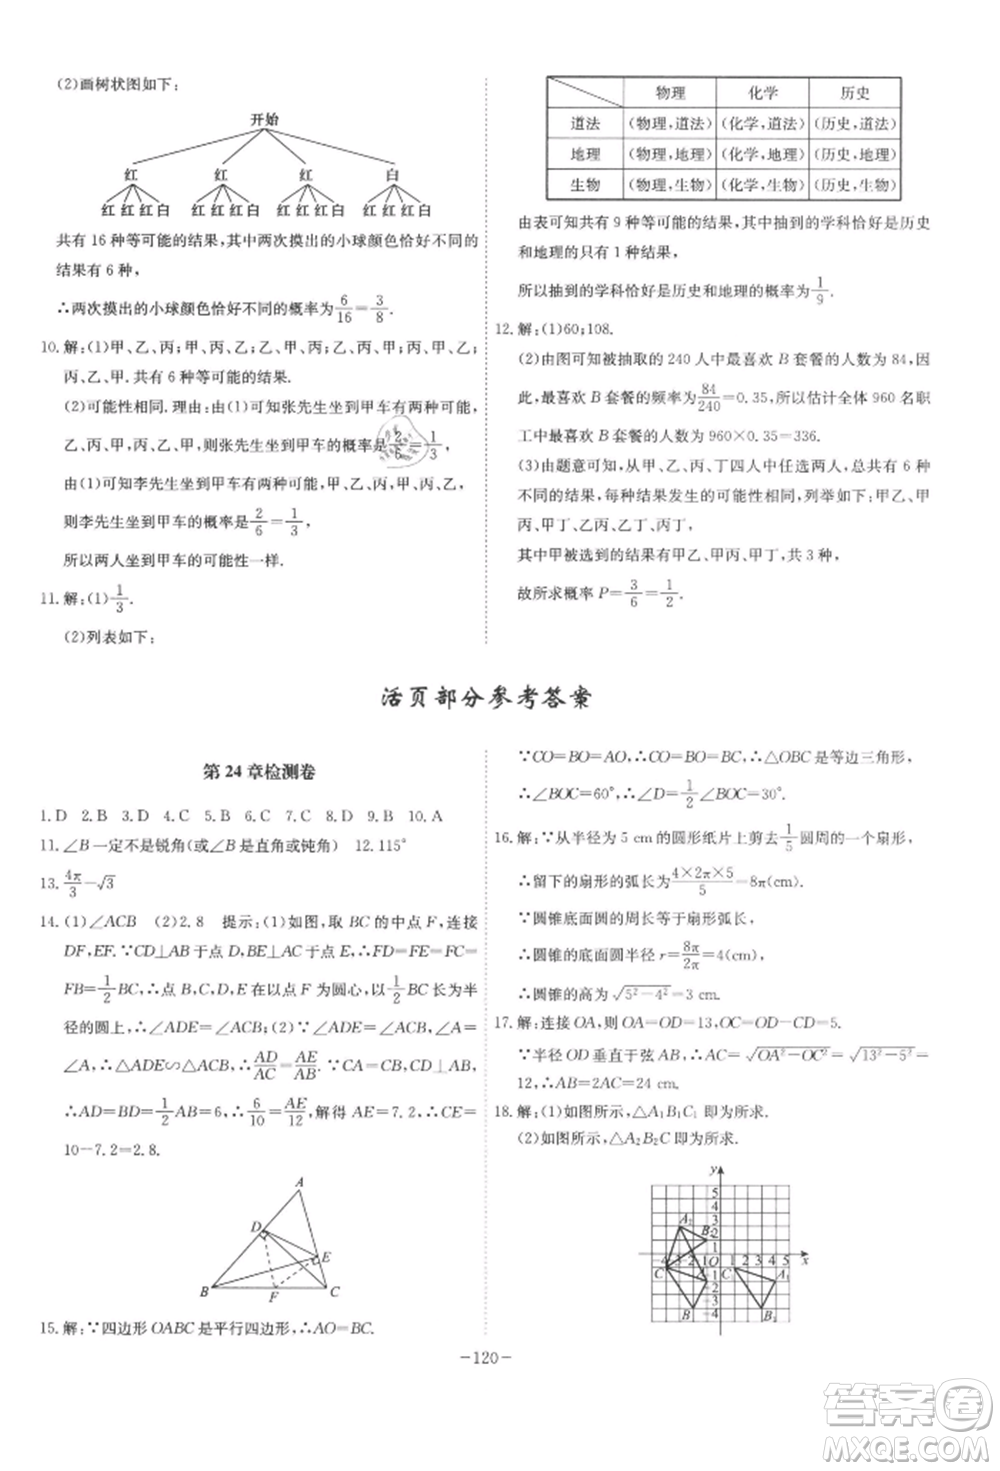 (2)画树状图如下:
开始
红 红 红 白
红 红 红 白 红 红 红 白 红 红 红 白 红 红 红 白
共有 16 种等可能的结果,其中两次摸出的小球颜色恰好不同的
结果有 6 种,
∴两次摸出的小球颜色恰好不同的概率为6/16=3/8.
10.解:(1)甲、乙、丙;甲、丙、乙;乙、甲、丙;乙、丙、甲;丙、甲、乙;
丙、乙、甲.共有 6 种等可能的结果.
(2)可能性相同.理由:由(1)可知张先生坐到甲车有两种可能,
乙、丙、甲;丙、乙、甲,则张先生坐到甲车的概率是2/6=1/3;
由(1)可知李先生坐到甲车有两种可能,甲、乙、丙;甲、丙、乙,
则李先生坐到甲车的概率是2/6=1/3,
所以两人坐到甲车的可能性一样.
11.解:(1)1/3.
(2)列表如下:
物理 化学 历史
道法 (物理,道法) (化学,道法) (历史,道法)
地理 (物理,地理) (化学,地理) (历史,地理)
生物 (物理,生物) (化学,生物) (历史,生物)
由表可知共有 9 种等可能的结果,其中抽到的学科恰好是历史
和地理的只有 1 种结果,
所以抽到的学科恰好是历史和地理的概率为1/9.
12.解:(1)60;108.
(2)由图可知被抽取的 240 人中最喜欢 B 套餐的人数为 84,因
此,最喜欢 B 套餐的频率为84/240=0.35,所以估计全体 960 名职
工中最喜欢 B 套餐的人数为 960×0.35=336.
(3)由题意可知,从甲、乙、丙、丁四人中任选两人,总共有 6 种
不同的结果,每种结果发生的可能性相同,列举如下:甲乙,甲
丙,甲丁,乙丙,乙丁,丙丁,
其中甲被选到的结果有甲乙、甲丙、甲丁,共 3 种,
故所求概率 P=3/6=1/2.
活页部分参考答案
第 24 章检测卷
1.D 2.B 3.D 4.D 5.B 6.D 7.D 8.B 9.B 10.A
11.∠B 一定不是锐角(或∠B 是直角或钝角) 12.115°
13.4π/3-√3
14.(1)∠ACB (2)2.8 提示:(1)如图,取 BC 的中点 F,连接
DF,EF.∵CD⊥AB 于点 D,BE⊥AC 于点 E,∴FD=FE=FC=
FB=1/2BC,∴点 B,D,E,C 在以点 F 为圆心,以1/2BC 长为半
径的圆上,∴∠ADE=∠ACB;(2)∵∠ADE=∠ACB,∠A=
∠A,∴△ADE∽△ACB,∴AD/AC=AE/AB.∵AC=BC,CD⊥AB,
∴AD=DB=1/2AB=6,∴6/10=AE/12,解得 AE=7.2,∴CE=
10-7.2=2.8.
A
D
E
B F C
15.解:∵四边形 OABC 是平行四边形,∴AO=BC.
∵CO=BO=AO,∴CO=BO=BC,∴△OBC 是等边三角形,
∴∠BOC=60°,∴∠D=1/2∠BOC=30°.
16.解:∵从半径为 5 cm 的圆形纸片上剪去1/5圆周的一个扇形,
∴留下的扇形的弧长为4×2π×5/5=8π(cm).
∵圆锥底面圆的周长等于扇形弧长,
∴圆锥的底面圆半径 r=8π/2π=4(cm),
∴圆锥的高为√5²-4²=3 cm.
17.解:连接 OA,则 OA=OD=13,OC=OD-CD=5.
∵半径 OD 垂直于弦 AB,∴AC=√OA²-OC²=√13²-5²=
12,∴AB=2AC=24 cm.
18.解:(1)如图所示,△A₁B₁C₁ 即为所求.
(2)如图所示,△A₂B₂C 即为所求.
y
5
4
3
A₂ 2
B₂ 1
-4 -3 -2 -1 O 1 2 3 4 5 x
C
-1 A₁
-3 B₁
-4
-120-
答案圈
MXQE.COM